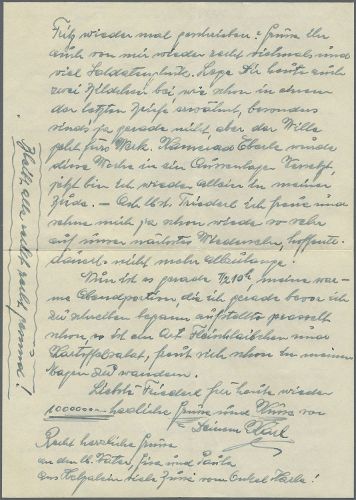 Fritz wieder mal geschrieben? Grüsse Ihn
auch von mir wieder recht vielmals und
viel Soldatenglück. Lege Dir heute auch
zwei Bildchen bei wie schon in einem
der letzten Briefe erwähnt, besonders
sind's ja gerade nicht, aber der Wille
geht fürs Werk. Kamerad Eberle wurde
diese Woche in ein Aussenlager versetzt,
jetzt bin ich wieder allein in meiner
Bude. – Ach lbst. Friederl ich freue und
sehne mich ja schon wieder so sehr
auf unser nächstes Wiedersehn, hoffent-
dauerts nicht mehr allzulange.
Nun ist es gerade ½10h, meine war-
me Abendportion, die ich gerade bevor ich
zu schreiben begann aufstellte prasselt
schon, es ist ein Art Fleischlaibchen und
Kartoffelsalat, freut sich schon in meinen
Magen zu wandern.
Liebste Friederl für heute wieder
10000000 herzliche Grüsse und Küsse von
Deinem Karl
Recht herzliche Grüsse
an den lb. Vater, und
viele Grüsse vom Onkel Karle!
Bleibt alle recht recht gesund!